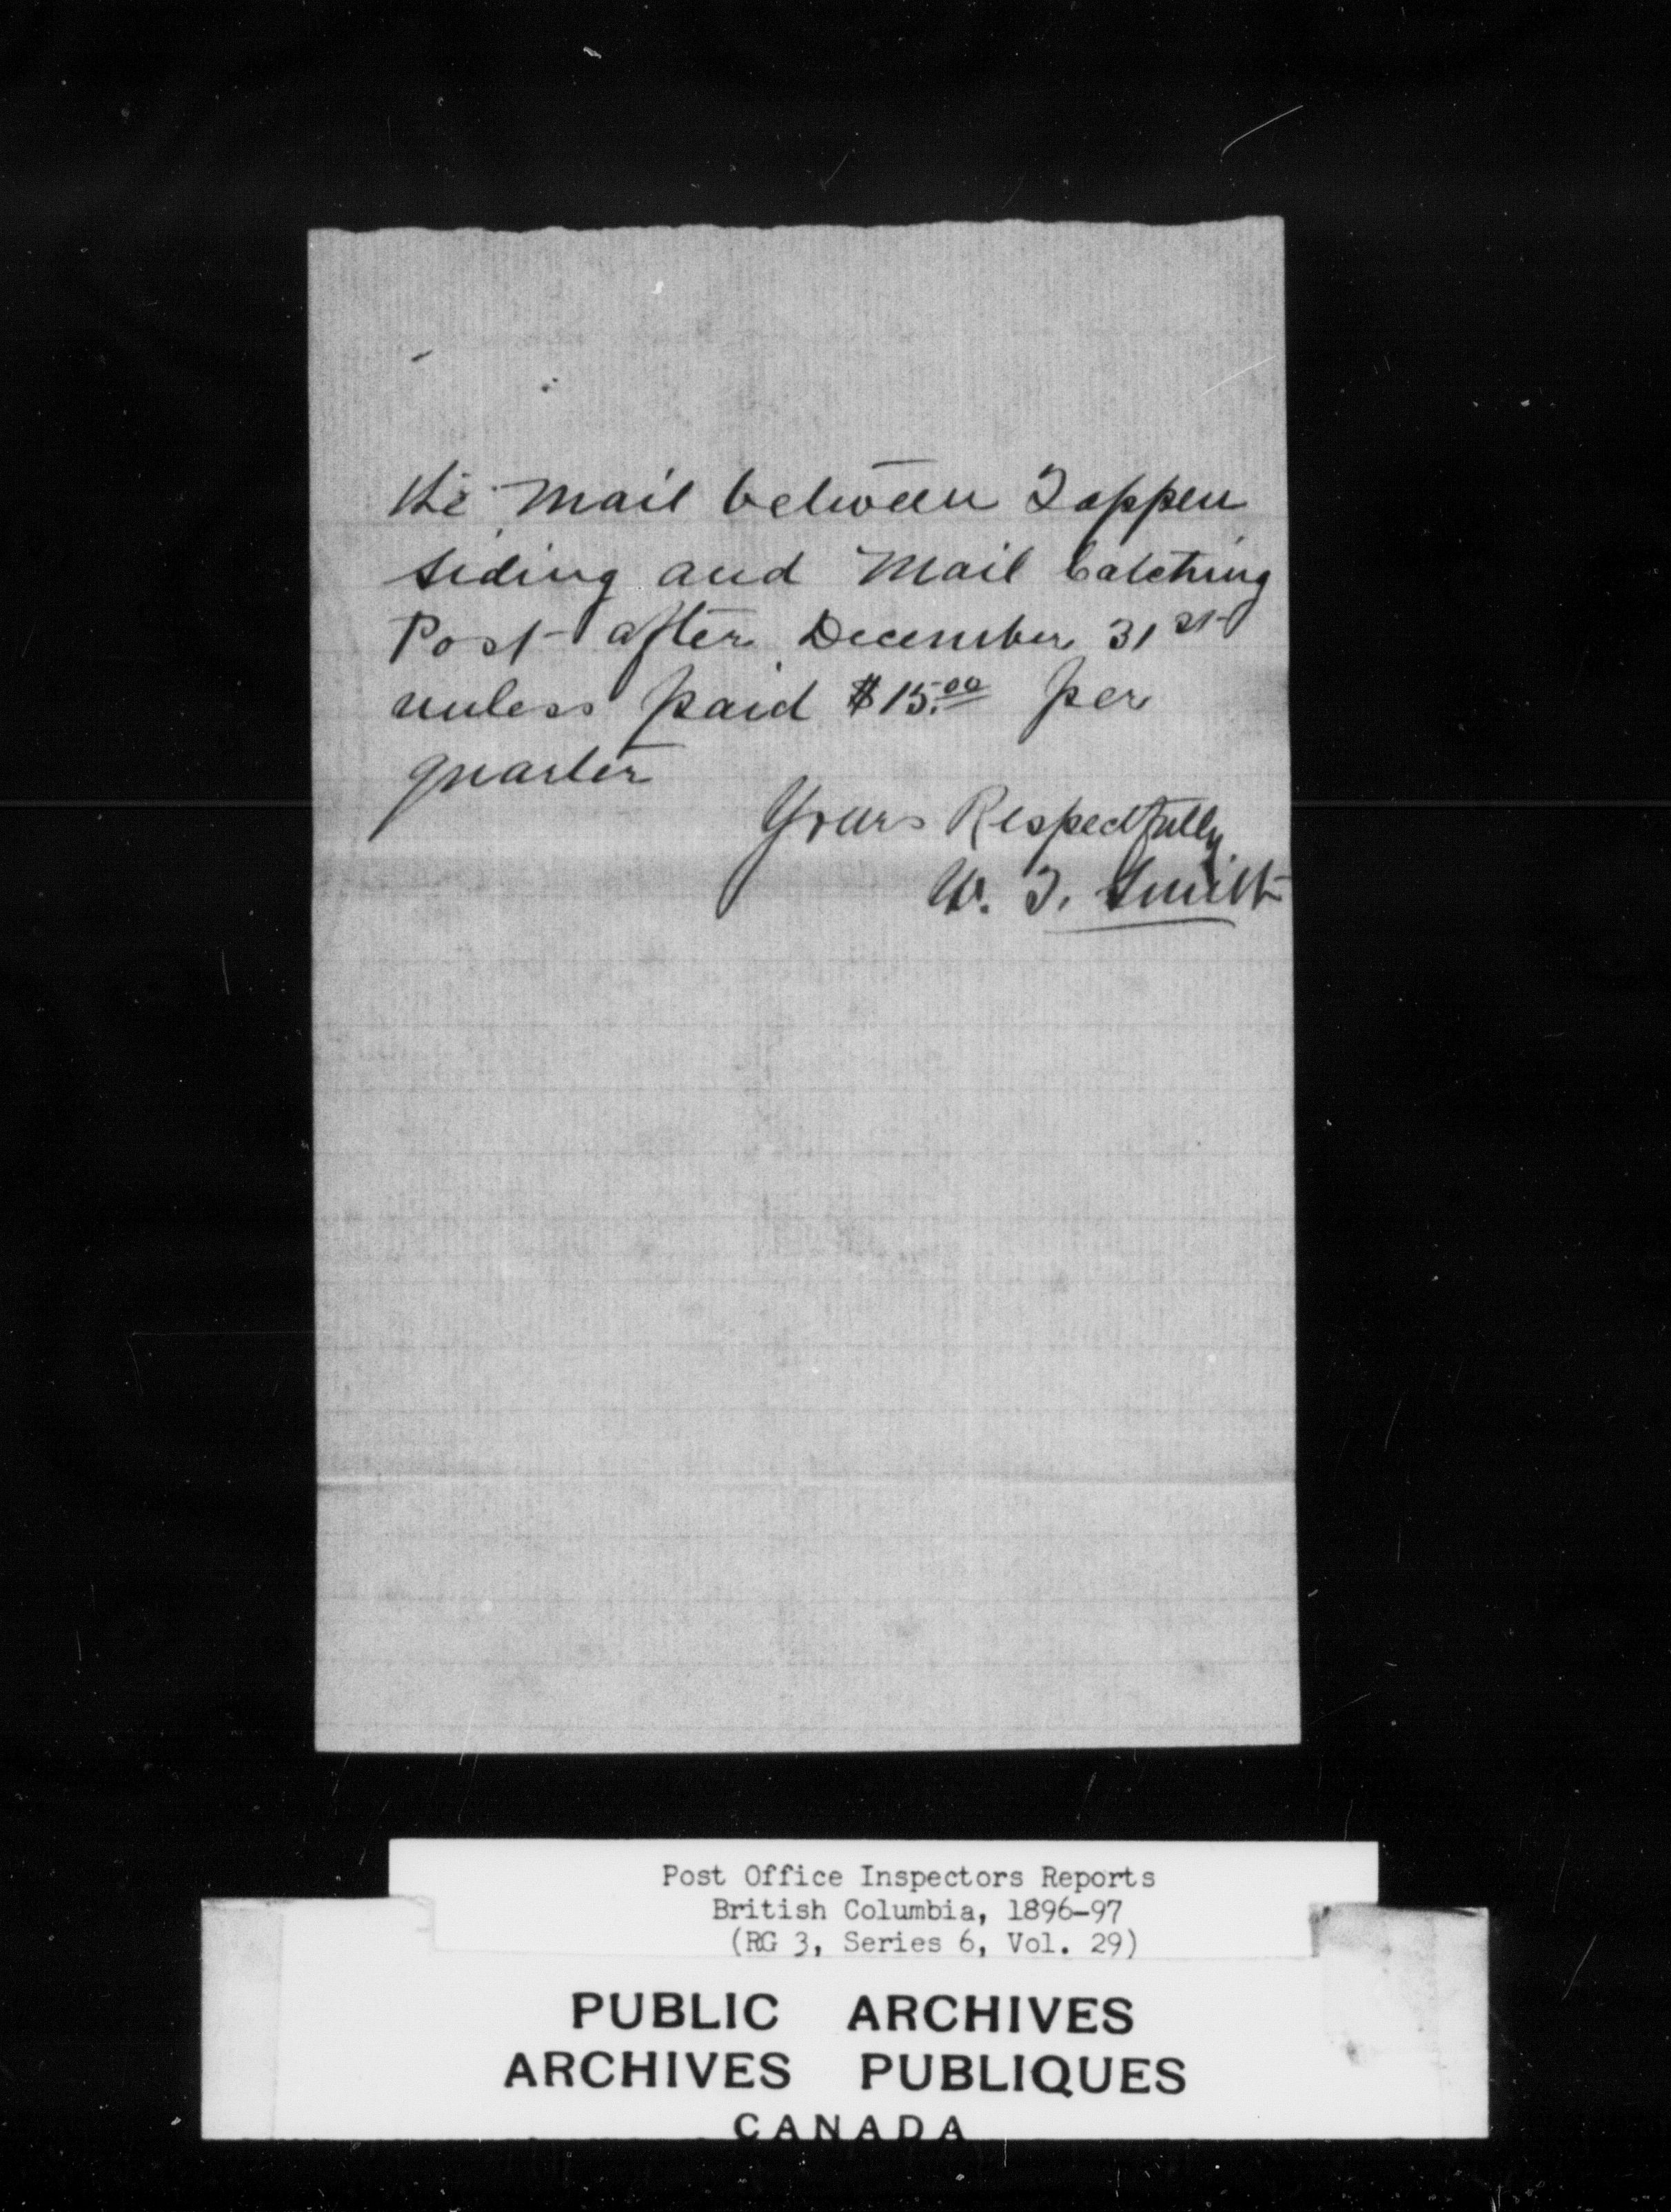 the Mail between Tappen
Siding and Mail Catching
Post after December 31st
unless paid $15.00 per
quarter
Yours Respectfully
W. T. Smith
Post Office Inspectors Reports
British Columbia, 1896-97
(RG 3, Series 6, Vol. 29)
PUBLIC ARCHIVES
ARCHIVES PUBLIQUES
CANADA